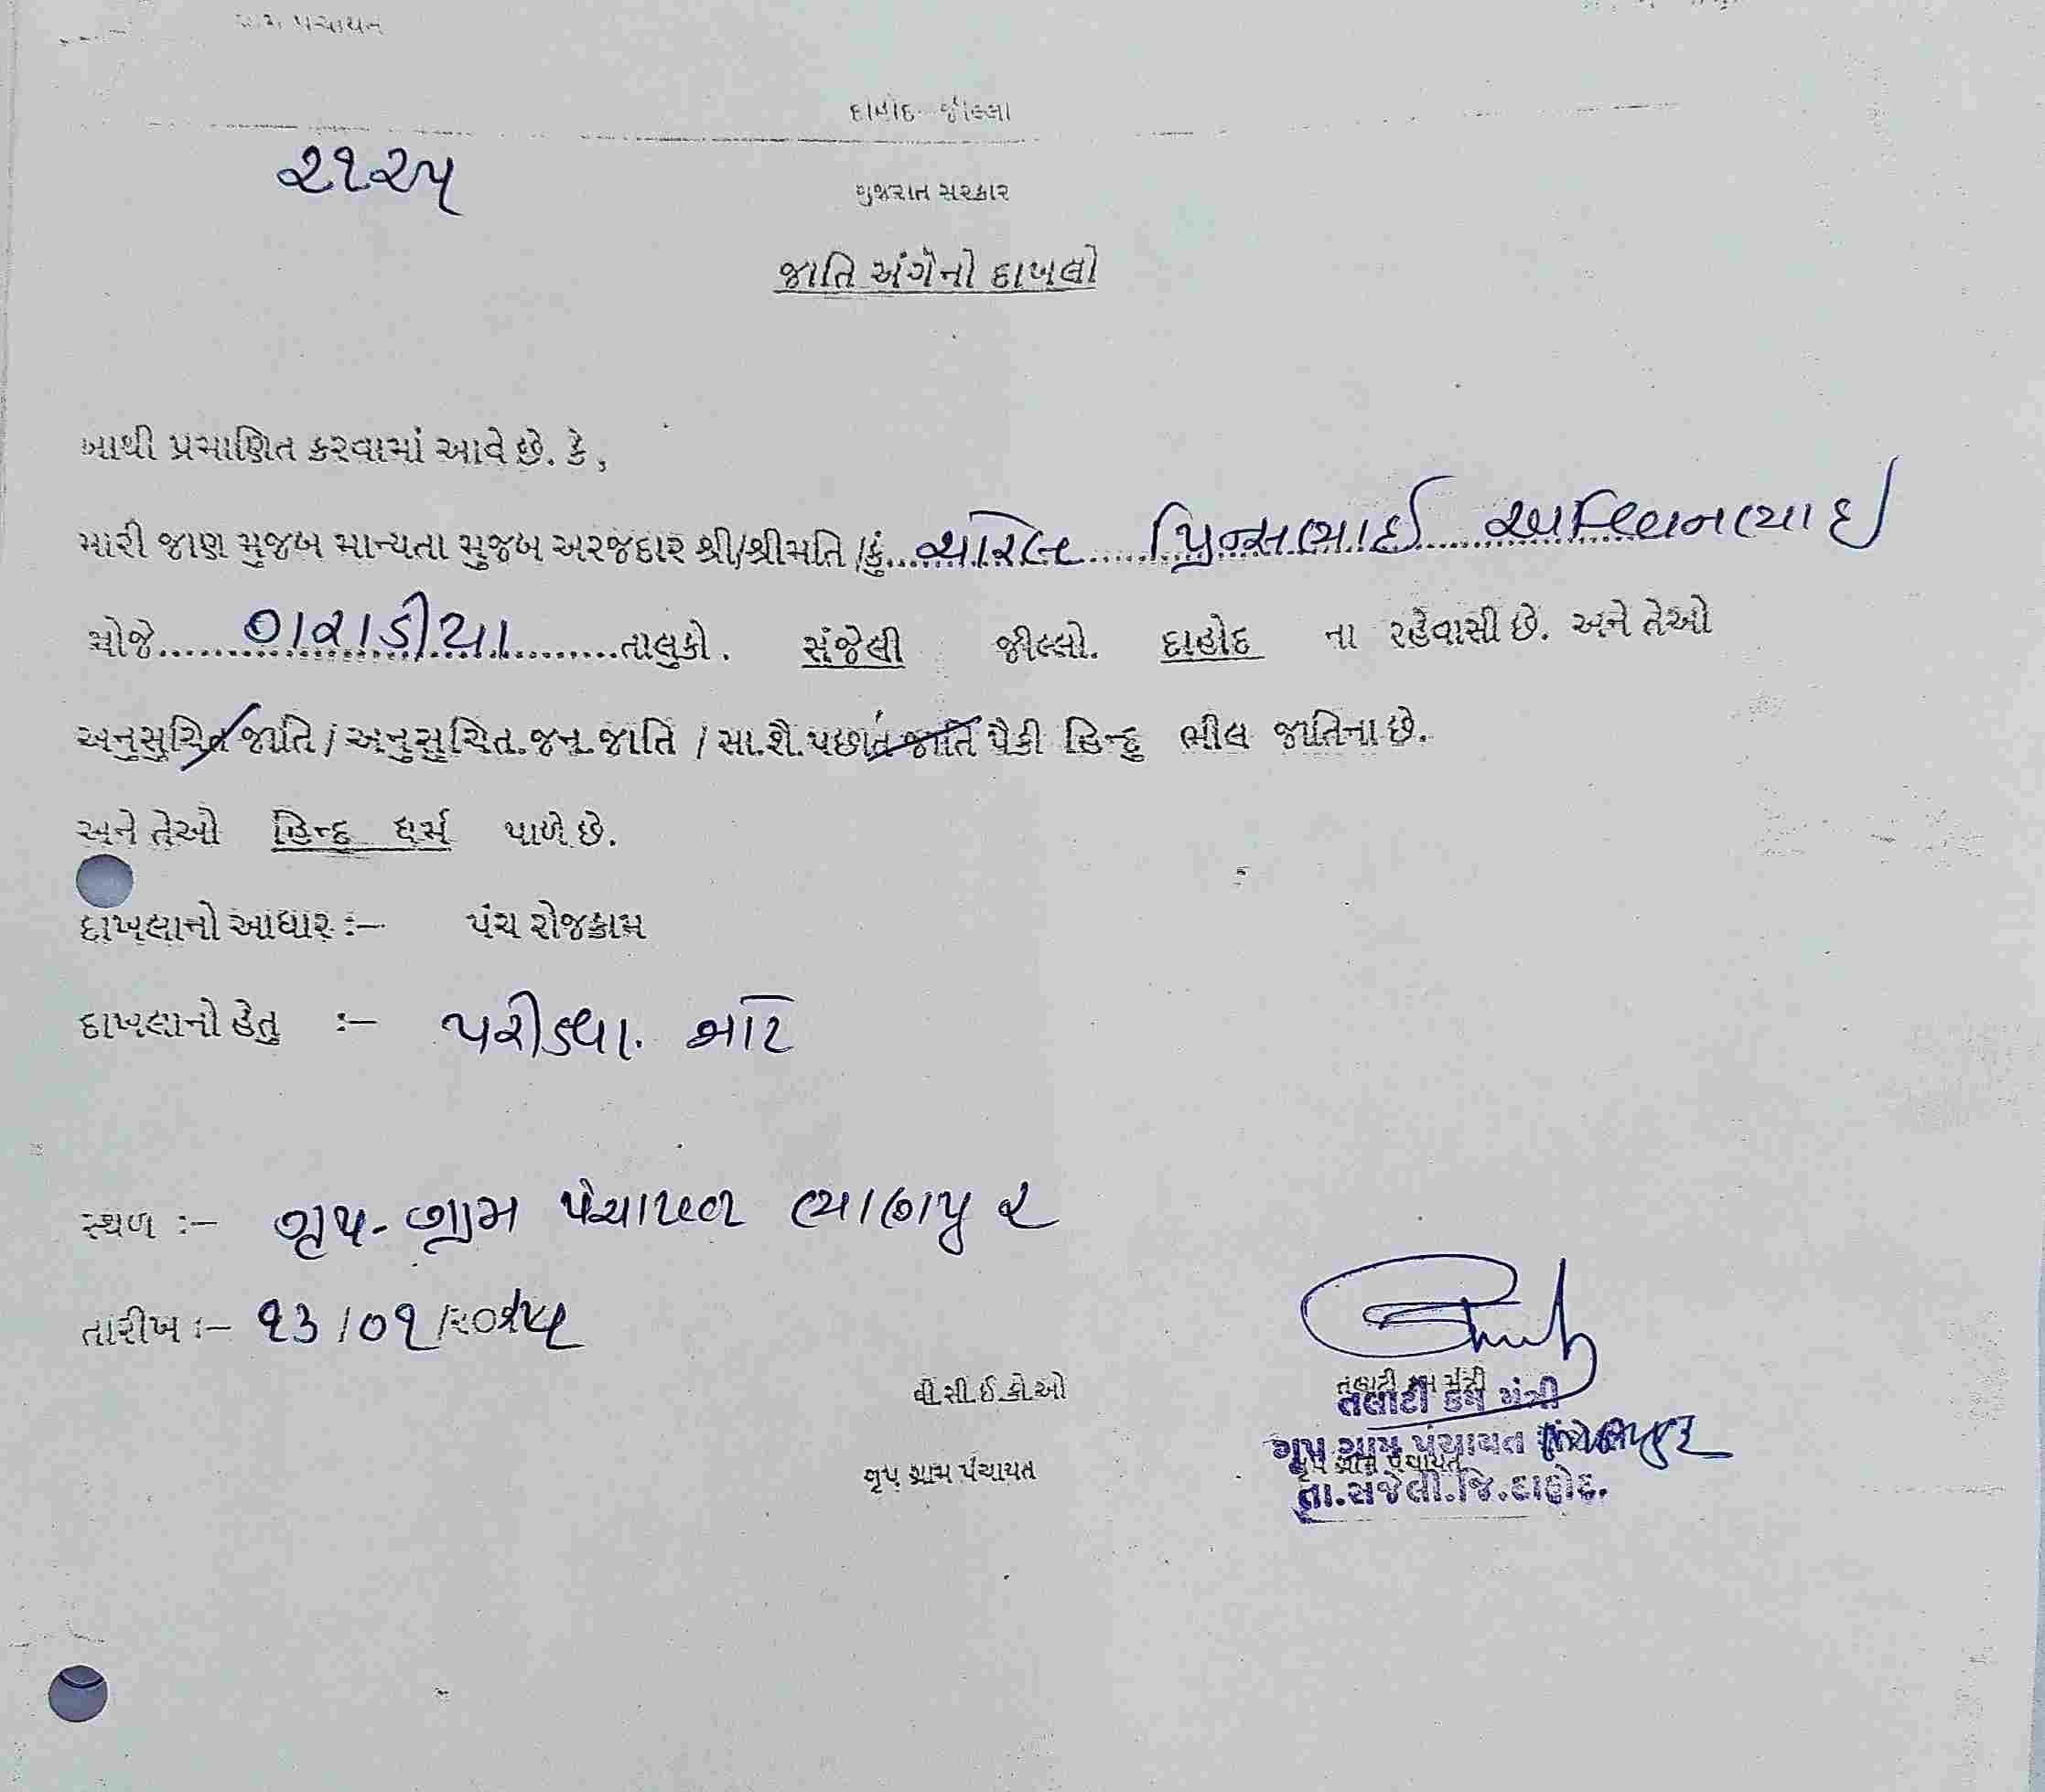 પંચાયત
દાહોદ જીલ્લા
૨૧૨૫
ગુજરાત સરકાર
જાતિ અંગેનો દાખલો
આથી પ્રમાણિત કરવામાં આવે છે. કે,
મારી જાણ મુજબ માન્યતા મુજબ અરજદાર શ્રી/શ્રીમતિ/કું. ચારેલ પ્રિન્સભાઈ અશ્વિનભાઈ
મોજે તાલુકો. સંજેલી જીલ્લો. દાહોદ ના રહેવાસી છે. અને તેઓ
અનુસુચિત જાતિ / અનુસુચિત.જન.જાતિ / સા.શૈ.પછાત જાતિ પૈકી હિન્દુ ભીલ જાતિના છે.
અને તેઓ હિન્દુ ધર્મ પાળે છે.
દાખલાનો આધાર :– પંચ રોજકામ
દાખલાનો હેતુ :– પરીક્ષા. માટે
સ્થળ :– ગૃપ- ગ્રામ પંચાયત ભાણપુર
તારીખ :– ૧૩/૦૧/૨૦૨૫
વી.સી.ઈ.કો.ઓ
તલાટી કમ મંત્રી
તલાટી કમ મંત્રી
ગૃપ ગ્રામ પંચાયત
ગૃપ ગ્રામ પંચાયત
ગૃપ ગ્રામ પંચાયત
તા.સંજેલી.જિ.દાહોદ.